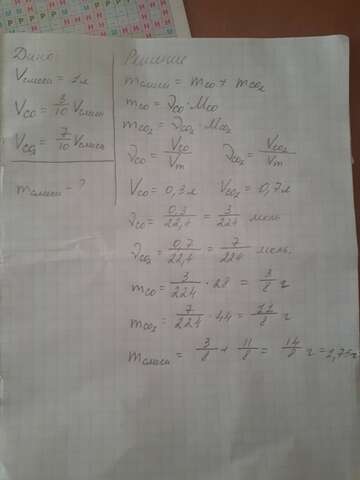 Дано
Vсмеси = 1л
Vco = 3/10 Vсмеси
Vco₂ = 7/10 Vсмеси
mсмеси - ?
Решение
mсмеси = mco + mco₂
mco = νco · Mco
mco₂ = νco₂ · Mco₂
νco = Vco/Vm νco₂ = Vco₂/Vm
Vco = 0,3л Vco₂ = 0,7л
νco = 0,3/22,4 = 3/224 моль
νco₂ = 0,7/22,4 = 7/224 моль.
mco = 3/224 · 28 = 3/8 г
mco₂ = 7/224 · 44 = 11/8 г
mсмеси = 3/8 + 11/8 = 14/8 г = 1,75г